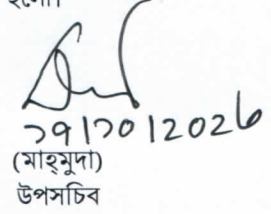 হলো।
২৭/২০/২০২৬
(মাহ্‌মুদা)
উপসচিব